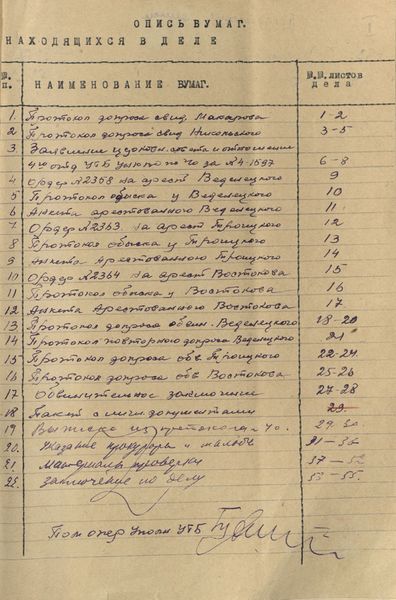 ОПИСЬ БУМАГ.
НАХОДЯЩИХСЯ В ДЕЛЕ
№. НАИМЕНОВАНИЕ БУМАГ. №.№.листов
п. дела
1. Протокол допроса свид. Макарова 1-2
2 Протокол допроса свид Никольского 3-5
3 Заявление церковн. совета и отношение
4го отд УГБ УНКВД по ЧО за №4-1597 6-8
4 Ордер №2358 на арест Веделецкого 9
5 Протокол обыска у Веделецкого 10
6 Анкета арестованного Веделецкого 11
7 Ордер №2363. на арест Троицкого 12
8 Протокол обыска у Троицкого 13
9 Анкета Арестованного Троицкого 14
10 Ордер №2364 на арест Востокова 15
11 Протокол обыска у Востокова 16
12 Анкета Арестованного Востокова 17
13 Протокол допроса обвин. Веделецкого 18-20
14 Протокол повторного допроса Веделецкого 21
15 Протокол допроса обв Троицкого 22-24
16 Протокол допроса обв Востокова 25-26
17 Обвинительное заключение 27-28
18 Пакет с личн документами 29.
19 Выписка из протокола 29-30.
20. Указание прокурора и жалобы 31-36
21 Материалы проверки 37-52
22. Заключение по делу 53-55.
Пом опер Упол УГБ